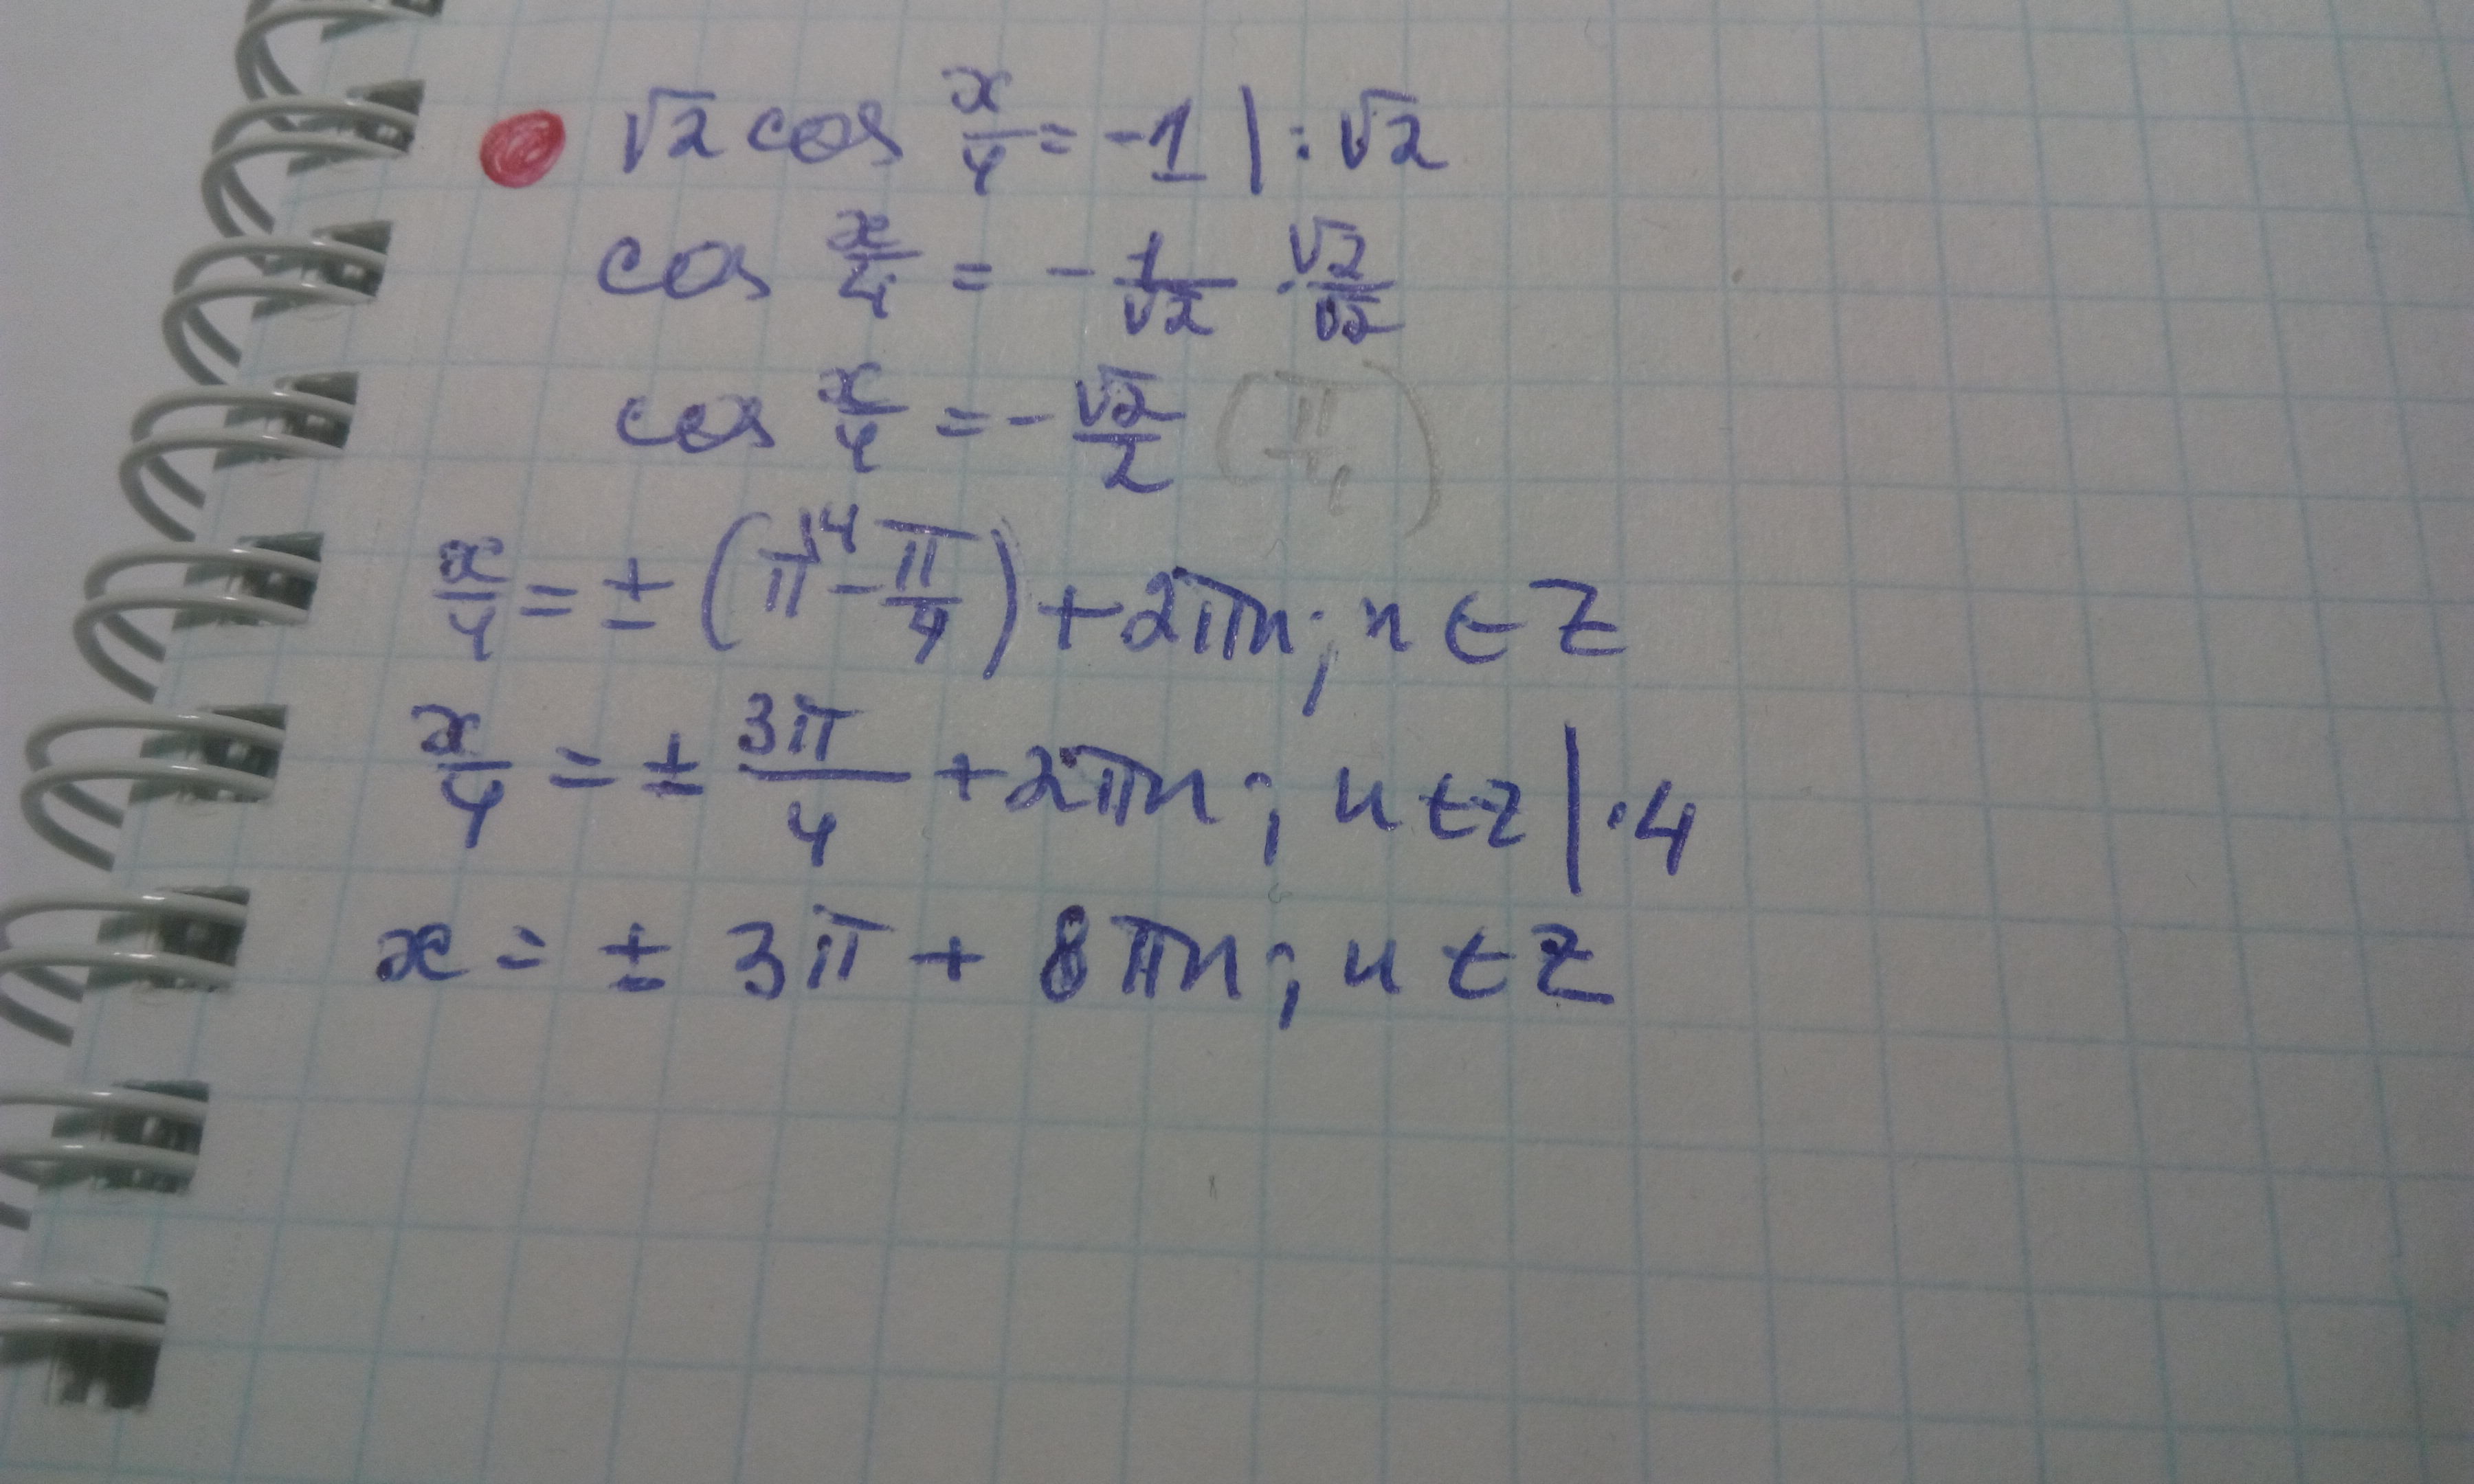 √2 cos x/4 = -1 | : √2
cos x/4 = - 1/√2 · √2/√2
cos x/4 = - √2/2 (π/4)
x/4 = ± (π\4 - π/4) + 2πn; n ∈ Z
x/4 = ± 3π/4 + 2πn; n ∈ Z | · 4
x = ± 3π + 8πn; n ∈ Z